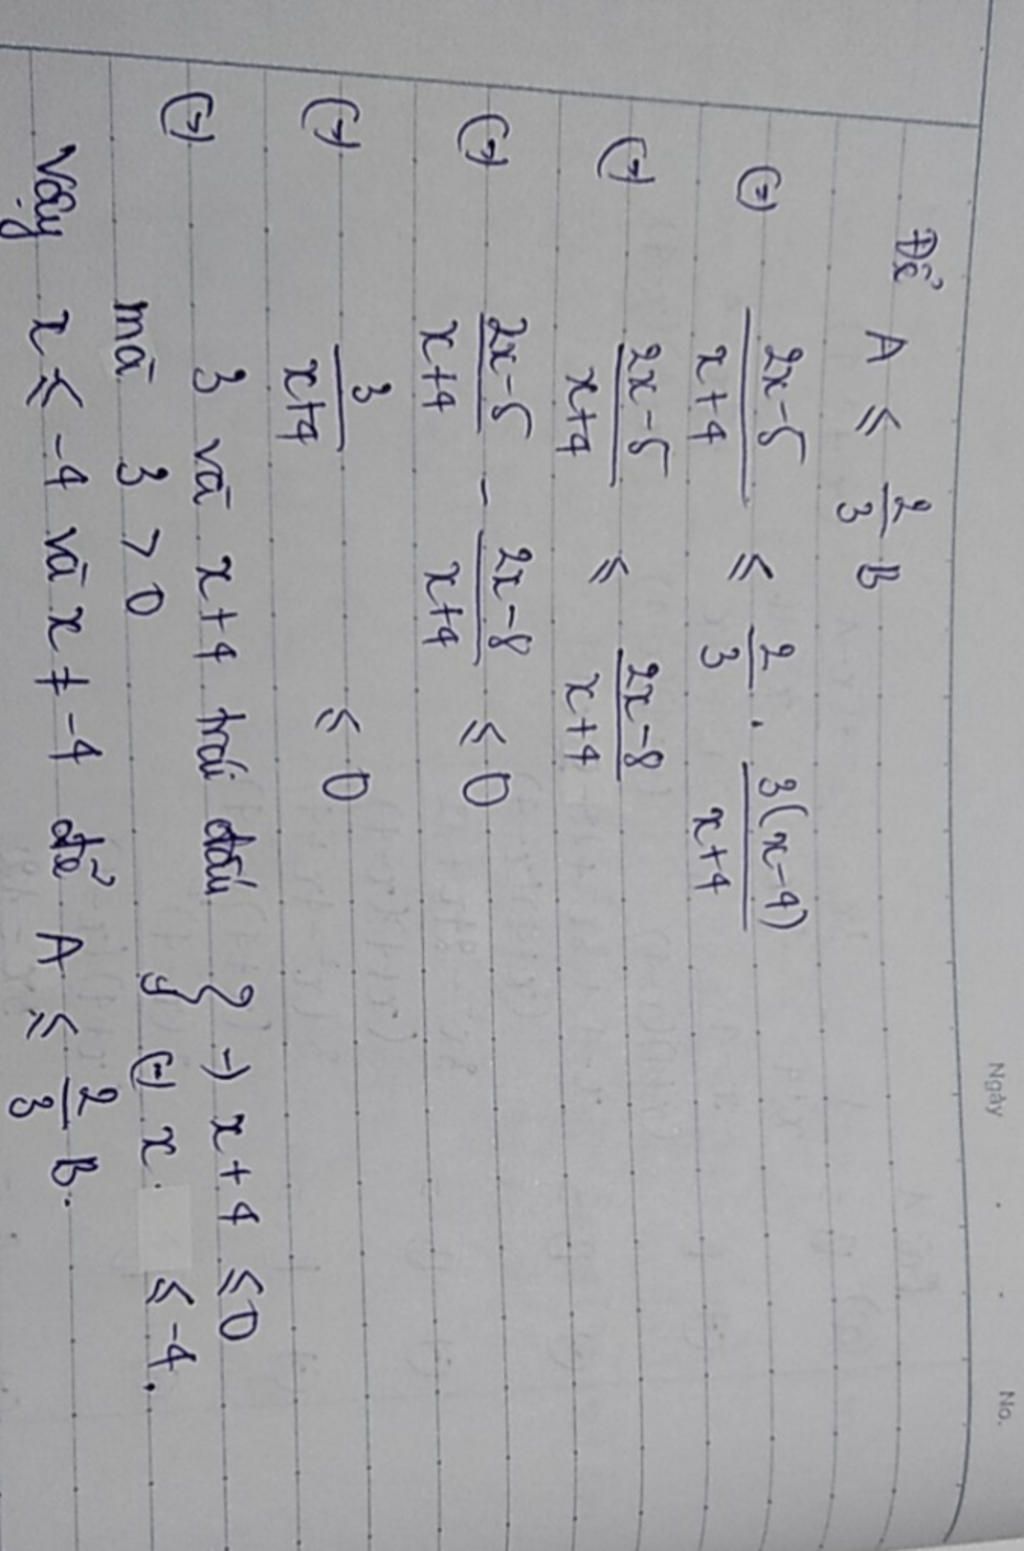 Ngày . . No.
Để A ≤ 2/3 B
(=) (2x-5)/(x+4) ≤ 2/3 . 3(x-4)/(x+4)
(=) (2x-5)/(x+4) ≤ (2x-8)/(x+4)
(=) (2x-5)/(x+4) - (2x-8)/(x+4) ≤ 0
(=) 3/(x+4) ≤ 0
(=) 3 và x+4 trái dấu } => x+4 ≤ 0
mà 3 > 0 (=) x ≤ -4.
Vậy x ≤ -4 và x ≠ -4 để A ≤ 2/3 B.